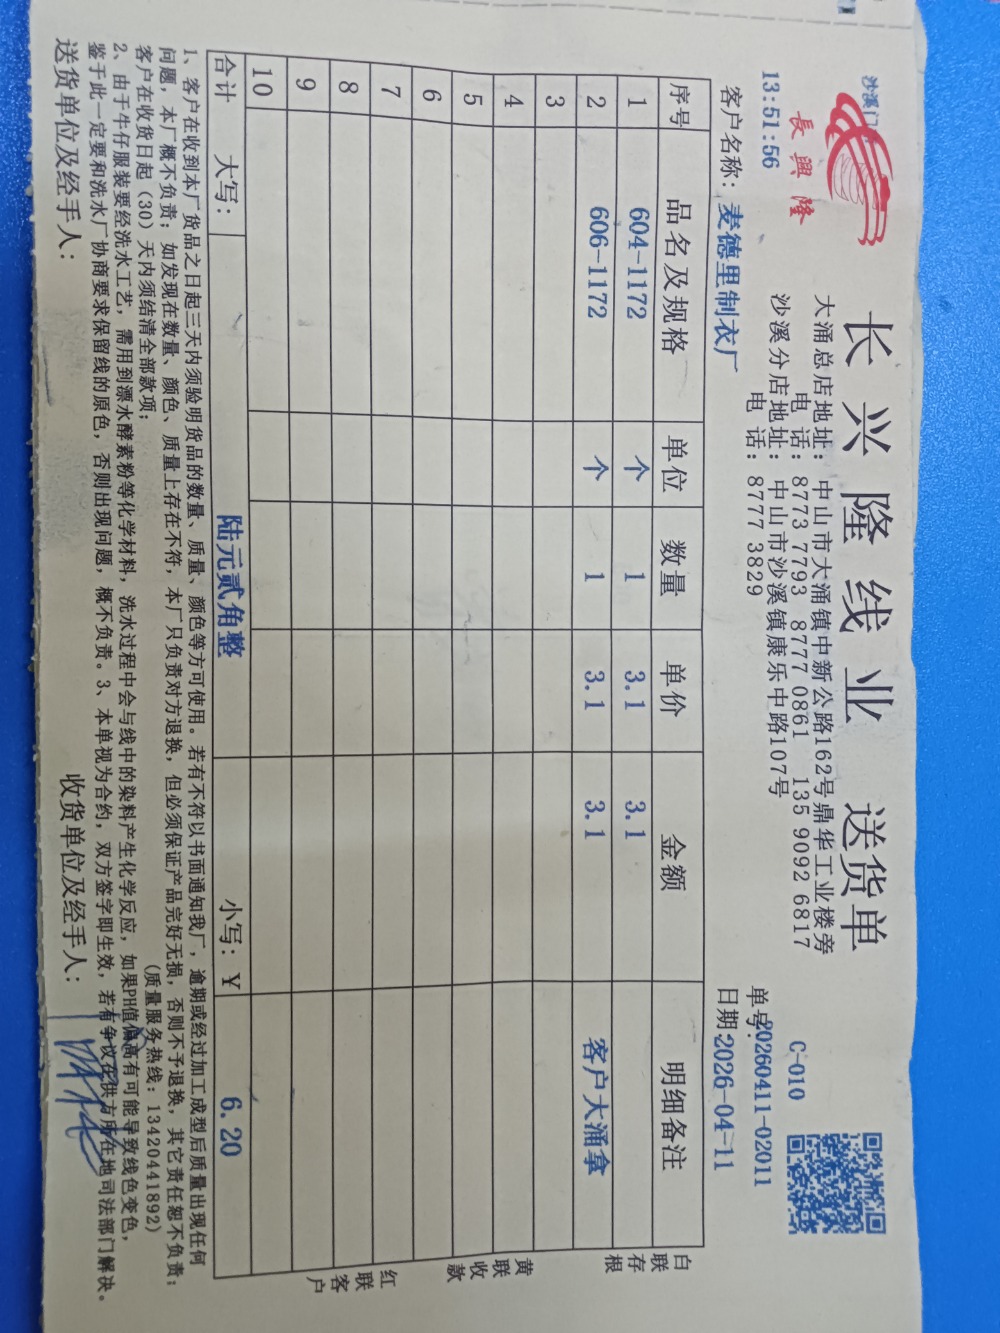 沙溪门
13:51:56
長興隆
长兴隆线业 送货单
大涌总店地址：中山市大涌镇中新公路162号鼎华工业楼旁
电话：8773 7793 8777 0861 135 9092 6817
沙溪分店地址：中山市沙溪镇康乐中路107号
电话：8777 3829
C-010
单号：20260411-02011
客户名称：麦德里制衣厂
日期:2026-04-11
序号 品名及规格 单位 数量 单价 金额 明细备注
1 604-1172 个 1 3.1 3.1
2 606-1172 个 1 3.1 3.1 客户大涌拿
3
4
5
6
7
8
9
10
合计 大写： 陆元贰角整 小写：￥ 6.20
白联存根
黄联收款
红联客户
1、客户在收到本厂货品之日起三天内须验明货品的数量、质量、颜色等方可使用。若有不符以书面通知我厂，逾期或经过加工成型后质量出现任何
问题，本厂概不负责；如发现在数量、颜色、质量上存在不符，本厂只负责对方退换，但必须保证产品完好无损，否则不予退换，其它责任恕不负责；
客户在收货日起（30）天内须结清全部款项； (质量服务热线：13420441892)
2、由于牛仔服装要经洗水工艺，需用到漂水酵素粉等化学材料，洗水过程中会与线中的染料产生化学反应，如果PH值偏高有可能导致线色变色，
鉴于此一定要和洗水厂协商要求保留线的原色，否则出现问题，概不负责。3、本单视为合约，双方签字即生效，若有争议在供方所在地司法部门解决。
送货单位及经手人： 收货单位及经手人：